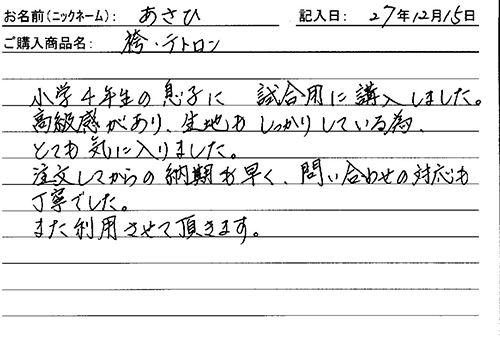 お名前(ニックネーム): あさひ 記入日: 27年12月15日
ご購入商品名: 袴・テトロン
小学4年生の息子に 試合用に講入しました。
高級感があり、生地もしっかりしている為、
とても気に入りました。
注文してからの納期も早く、問い合わせの対応も
丁寧でした。
また利用させて頂きます。